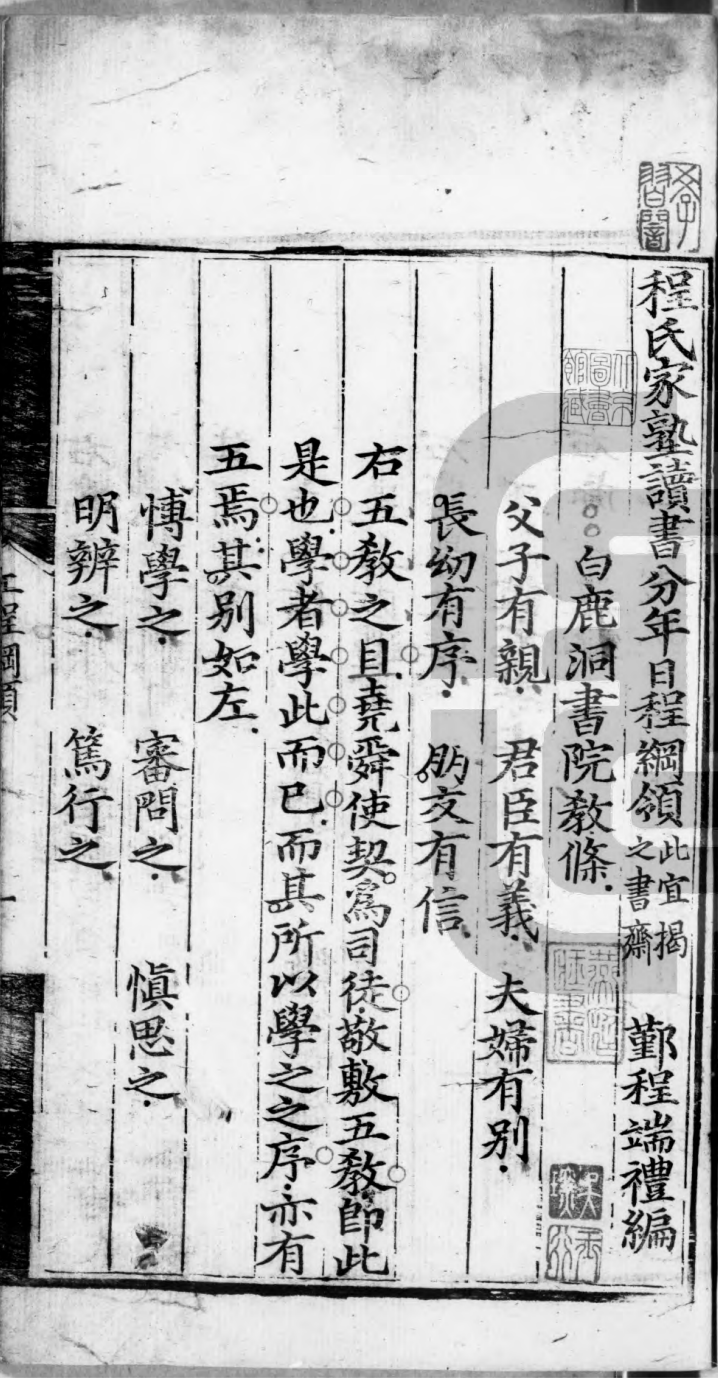 程氏家塾讀書分年日程綱領 此宜揭之書齋 鄞程端禮編
白鹿洞書院教條
父子有親 君臣有義 夫婦有别
長幼有序 朋友有信
右五教之目堯舜使契爲司徒敬敷五教即此
是也學者學此而已而其所以學之之序亦有
五焉其别如左
博學之 審問之 慎思之
明辨之 篤行之
工程綱領
一